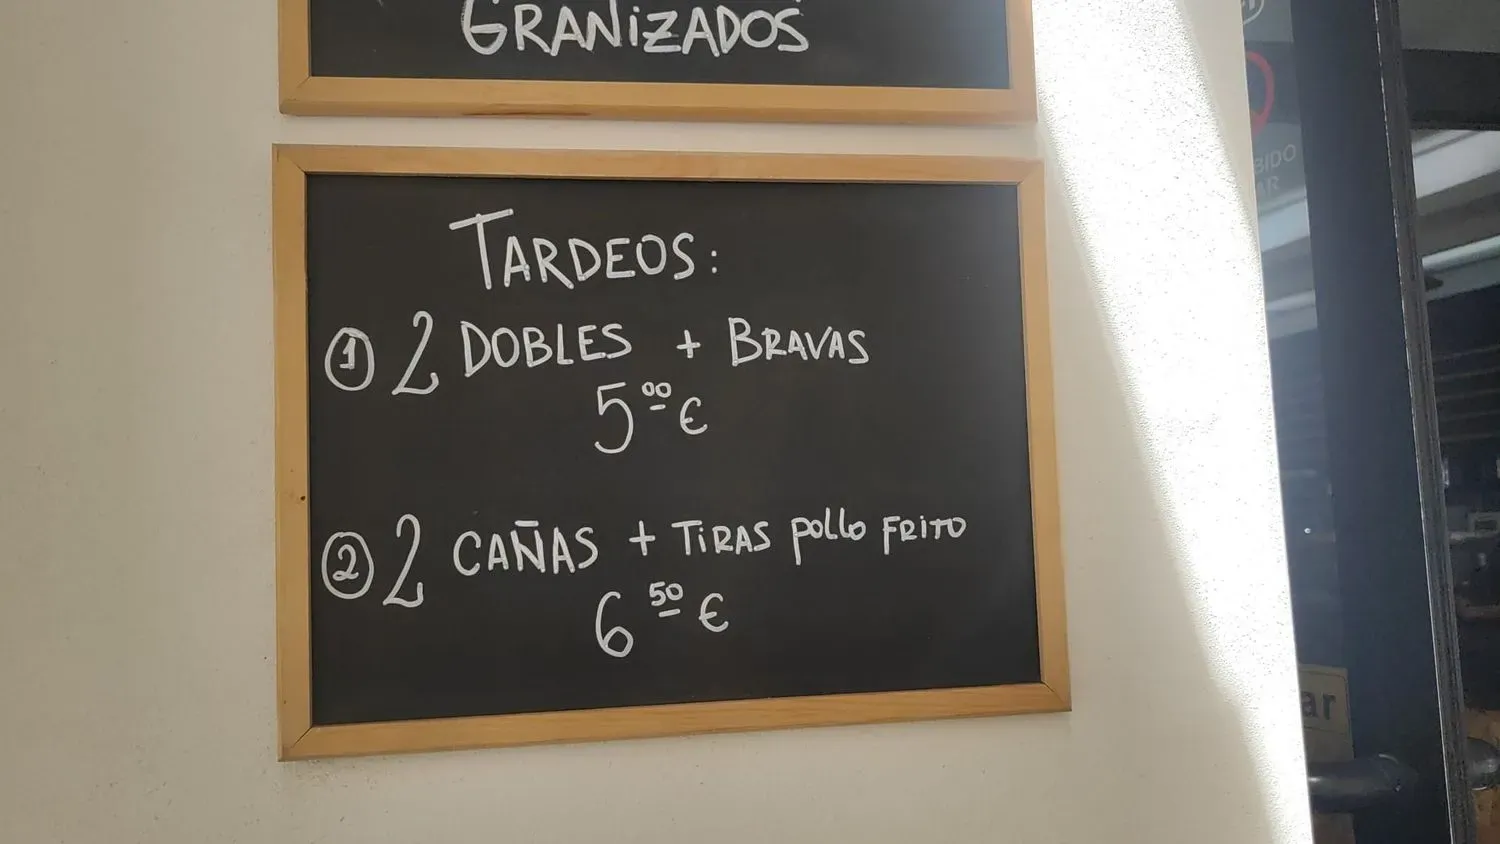 GRANiZADOS
TARDEOS:
① 2 DOBLES + BRAVAS
5⁰⁰ €
② 2 CAÑAS + TiRAS pollo FRiTO
6⁵⁰ €
BIDO
AR
ar